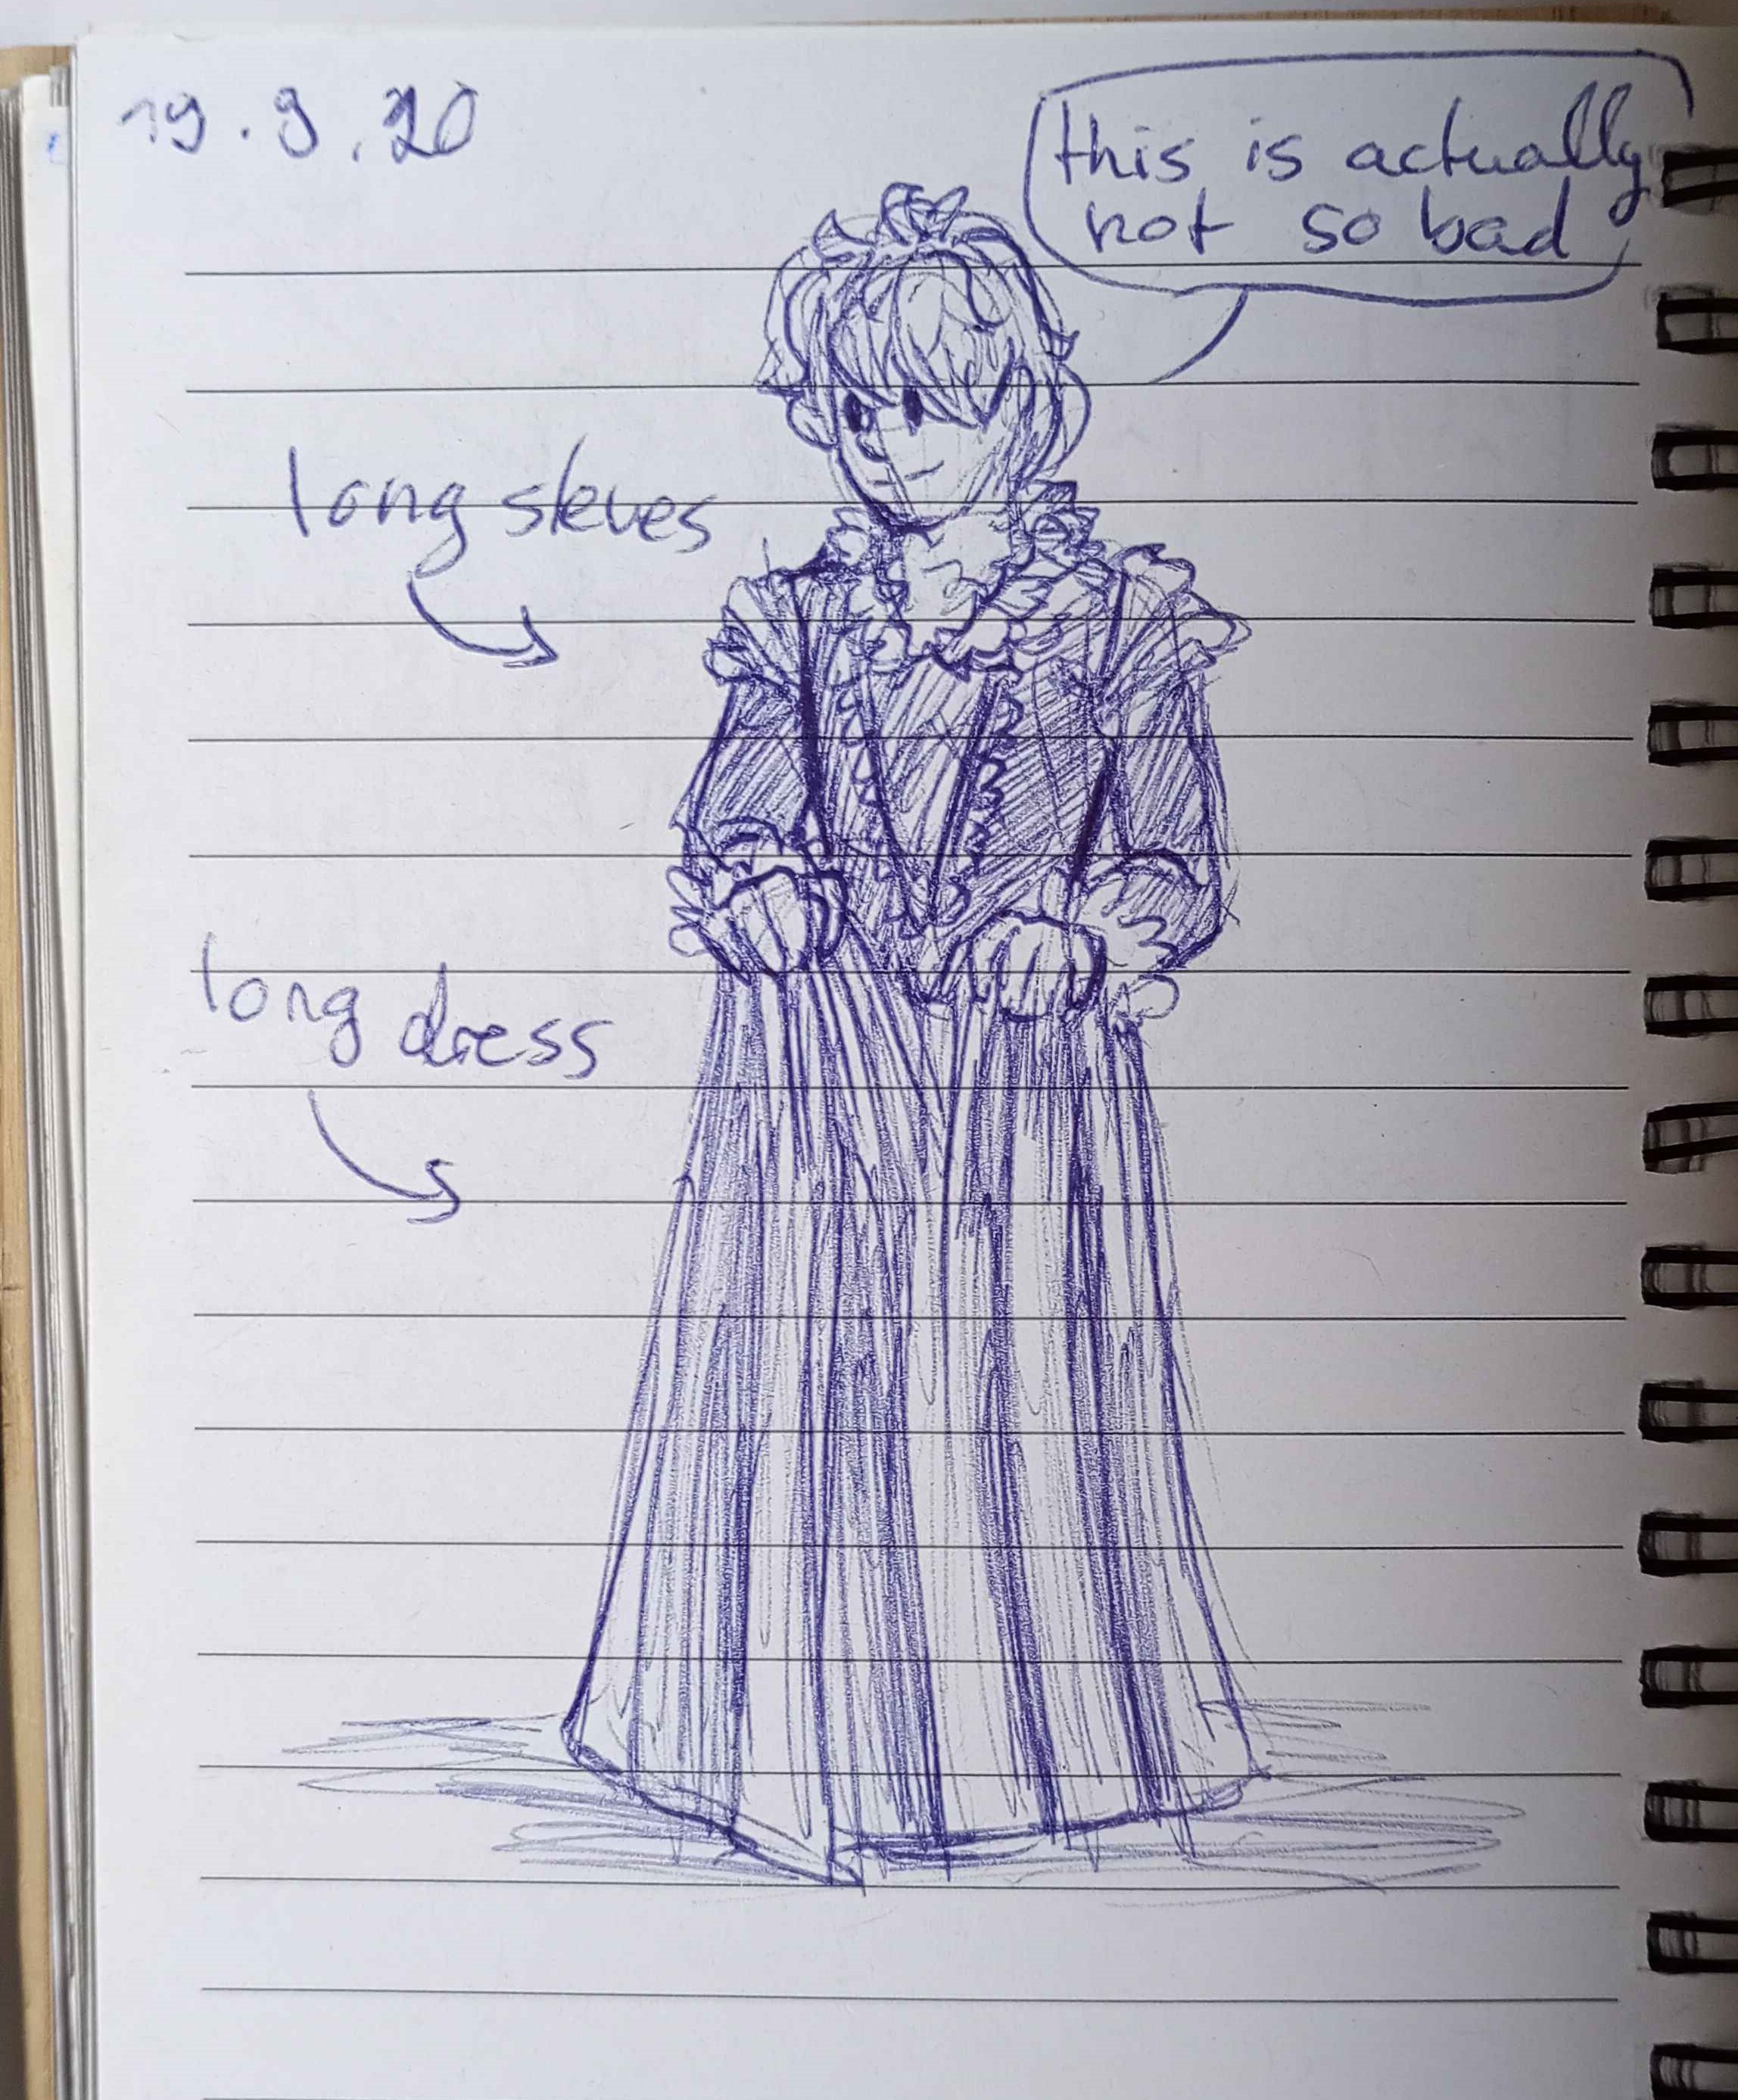 19.9.20
this is actually
not so bad
long sleves
long dress